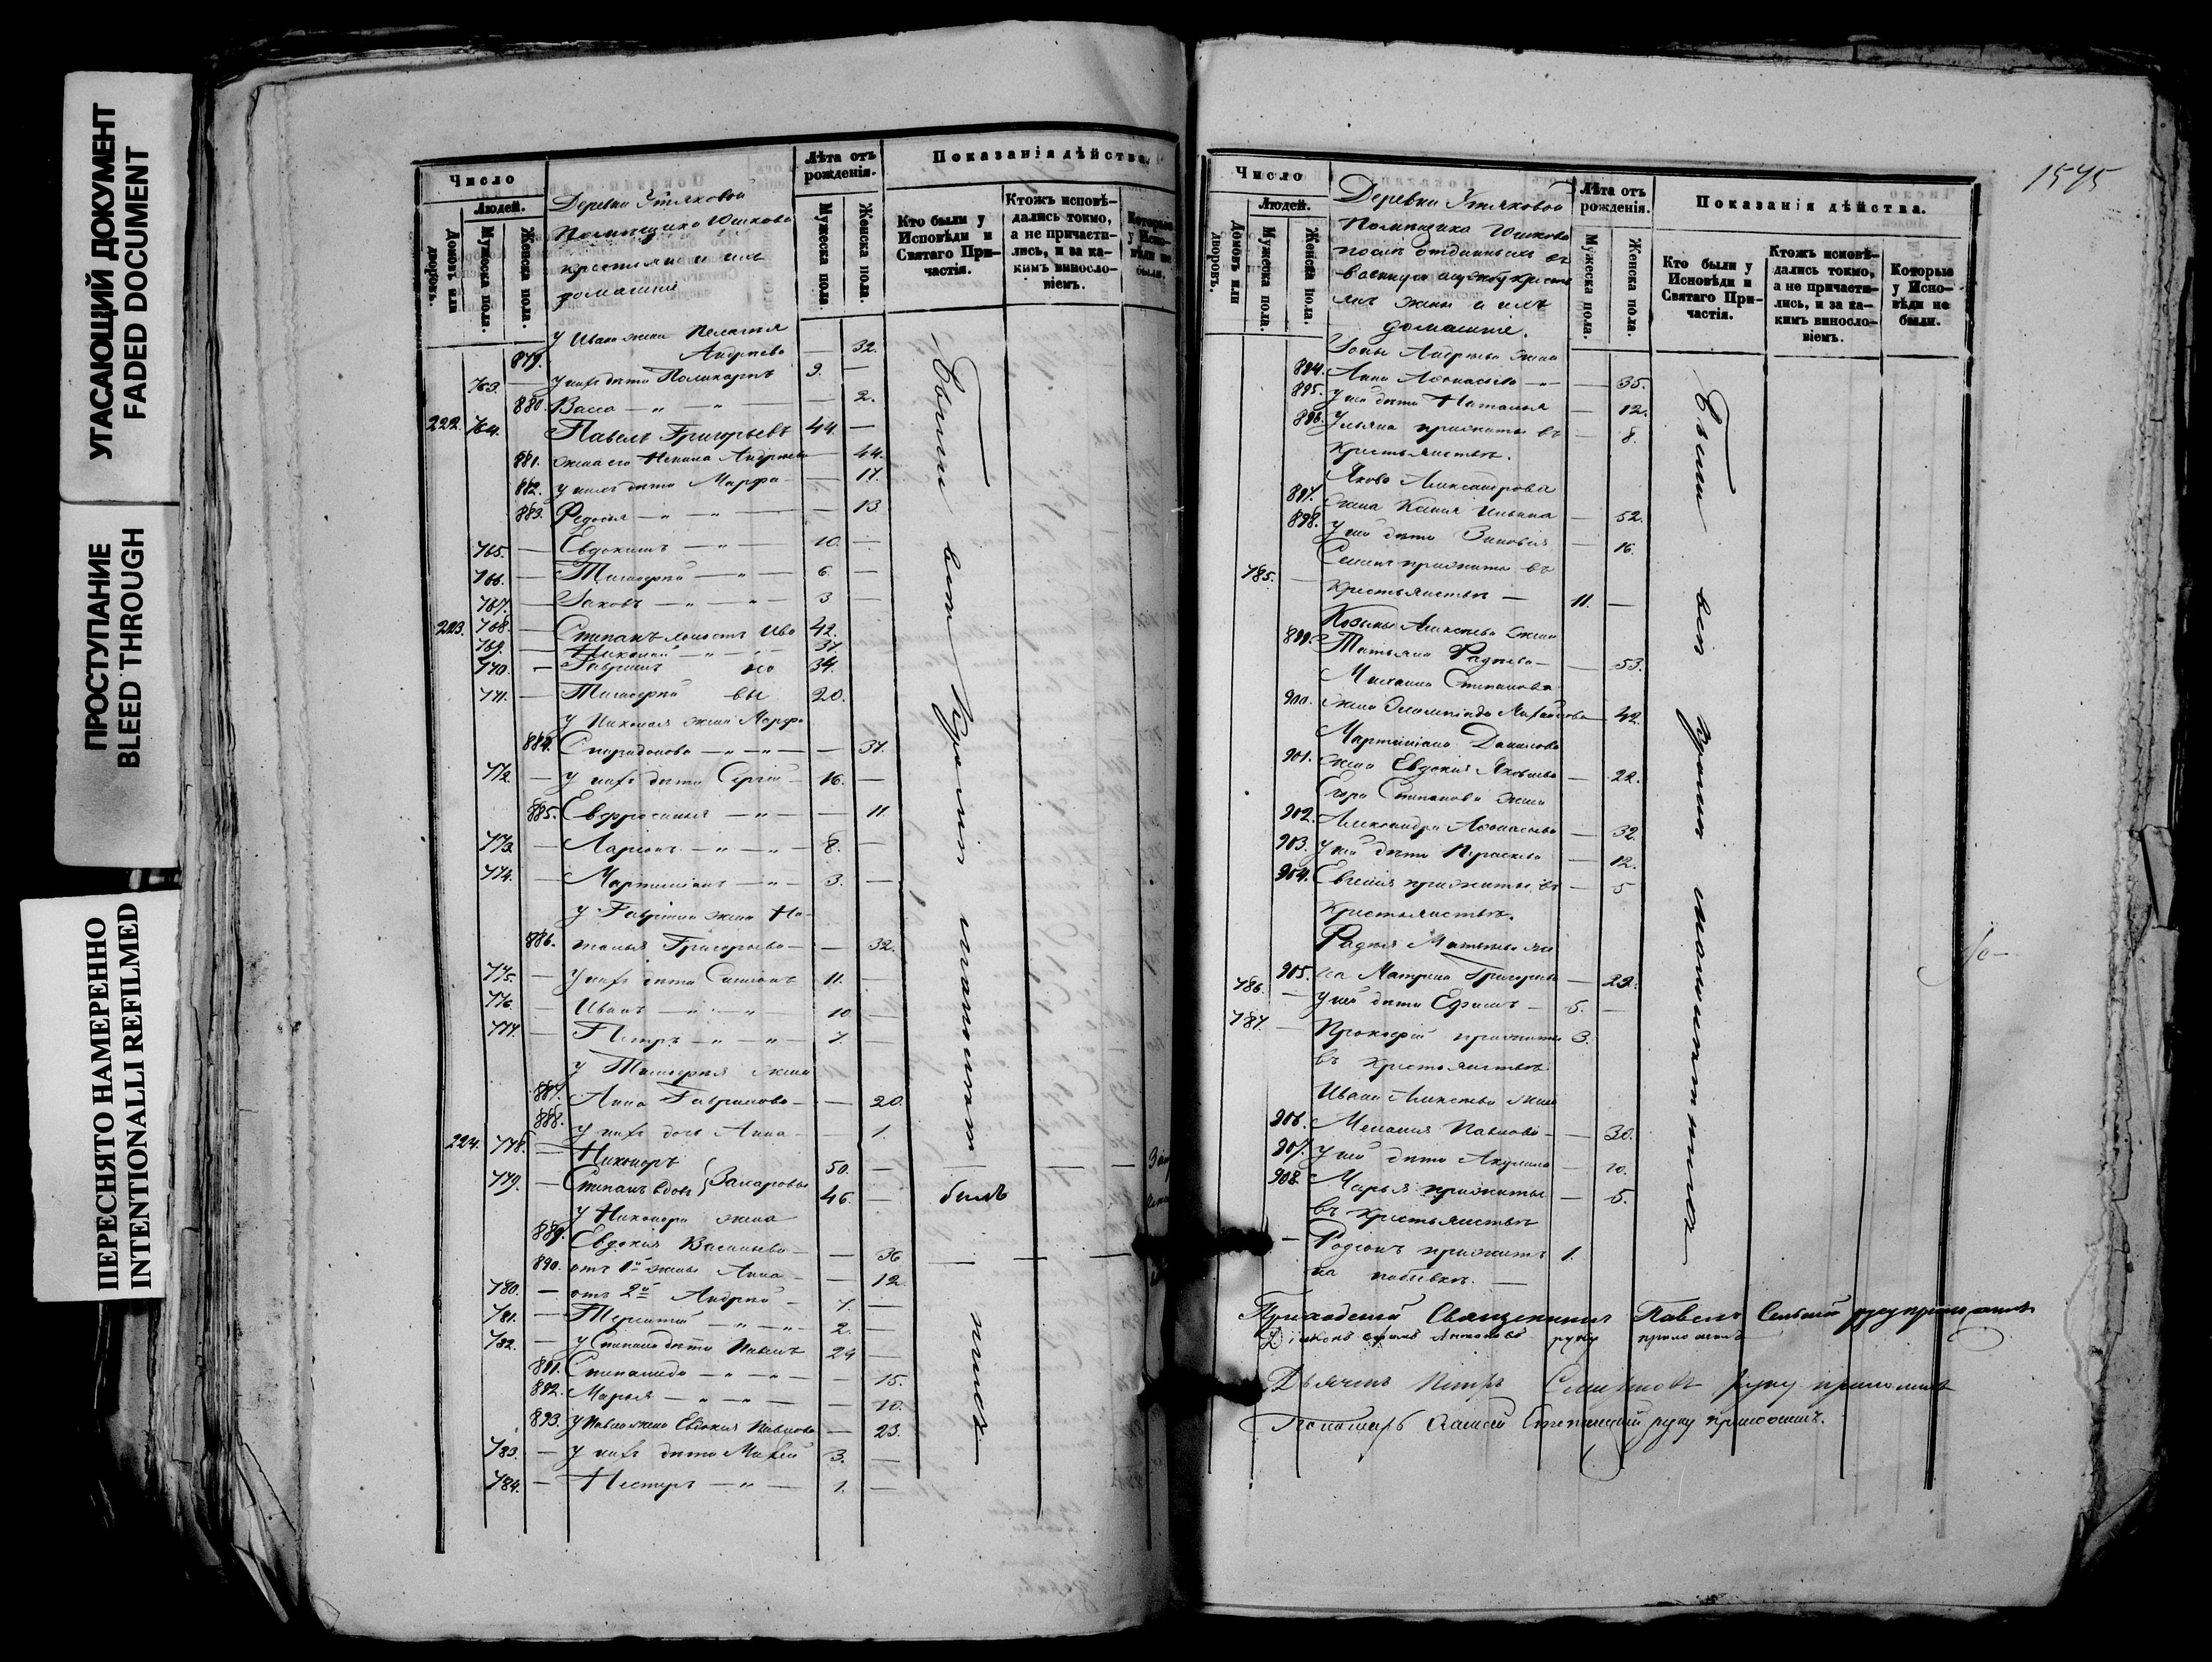 УГАСАЮЩИЙ ДОКУМЕНТ
FADED DOCUMENT
ПРОСТУПАНИЕ
BLEED THROUGH
ПЕРЕСНЯТО НАМЕРЕННО
INTENTIONALLI REFILMED
Число
Людей.
Домовъ или дворовъ.
Мужеска пола.
Женска пола.
Деревни
Помѣщика Юшкова
крестьяне и ихъ
домашніе
Лѣта отъ рожденія.
Мужеска пола.
Женска пола.
Показанія дѣйства.
Кто были у Исповѣди и Святаго Причастія.
Ктожъ исповѣдались токмо, а не причастились, и за какимъ винословіемъ.
Которые у Исповѣди не были.
у Ивана жена Пелагея
879. Андреева — 32.
763. — у нихъ дѣти Поликарпъ 9. —
880. Васса — „ — „ — — 2.
222. 764. Павелъ Григорьевъ 44. —
881. жена его Ненила Андреева — 44.
882. у нихъ дѣти Марфа — — 17.
883. Федосья — „ — „ — — 13.
765. — Евдокимъ — „ — 10. —
766. — Тимофей — „ — 6. —
767. — Іаковъ — „ — „ — 3 —
223. 768. — Степанъ холостъ Ива 42.
769. — Николай — „ — „ — 37
770. — Гавріилъ но 34.
771. — Тимофей вы 20.
у Николая жена Марфа
884. Спиридонова — „ — „ — — 37.
772. — у нихъ дѣти Сергій — 16. —
885. Евфросинья — „ — — 11.
773. — Ларіонъ — „ — „ — 8. —
774. — Мартиніанъ — „ — 3. —
у Гавріила жена На-
886. талья Григорьева — — 32.
775. — у нихъ дѣти Симеонъ 11. —
776. — Иванъ — „ — „ — 10. —
777. — Петръ — „ — „ — 7. —
у Тимофея жена
887. Анна Гаврилова — — 20.
888. у нихъ дочь Анна — — 1.
224. 778. — Никаноръ } 50. —
779. — Степанъ вдовъ } Захаровы 46. — былъ
у Никанора жена
889. Евдокія Васильева — — 36
890. отъ 1й жены Анна — — 12.
780. — отъ 2й Андрей — 7. —
781. — Терентій — „ — „ — 2. —
782. — у Степана дѣти Павелъ 24 —
891. Степанида — „ — „ — — 15.
892. Марья — „ — „ — — 10.
893. у Павла жена Евдокія Павлова — 23.
783. — у нихъ дѣти Матвей 3. —
784. — Несторъ — „ — 1. —
Были всѣ кромѣ малолѣтнихъ
1575
Число
Людей.
Домовъ или дворовъ.
Мужеска пола.
Женска пола.
Деревни
Помѣщика Юшкова
послѣ отданныхъ въ
военную службу крестьянъ
жены и ихъ
домашніе.
Лѣта отъ рожденія.
Мужеска пола.
Женска пола.
Показанія дѣйства.
Кто были у Исповѣди и Святаго Причастія.
Ктожъ исповѣдались токмо, а не причастились, и за какимъ винословіемъ.
Которые у Исповѣди не были.
Андреева жена
894. Анна Афонасьева — „ — — 35.
895. у ней дѣти Наталья — 12.
896. Ульяна прижиты въ — 8.
крестьянствѣ.
Якова Александрова
897. жена Ксенія Ильина — 52.
898. у ней дѣти Зиновья — 16.
Семенъ прижиты въ
785. — крестьянствѣ — 11. —
Козьмы Алексеева жена
899. Татьяна Радиева — — 53.
Михаила Степанова
900. жена Олимпіада Михайлова — 42.
Мартиніана Данилова
901. жена Евдокія Яковлева — 22.
Егора Степанова жена
902. Александра Афонасьева — 32.
903. у ней дѣти Параскева — 12.
904. Евгенія прижиты въ — 5
крестьянствѣ.
Радіона Матвеева же
905. на Матрена Григорьева — 29.
786. — у ней дѣти Ефимъ — 5. —
787. — Прокофій прижиты 3.
въ крестьянствѣ.
Ивана Алексеева жена
906. Меланія Павлова — — 30.
907. у ней дѣти Акулина — 10.
908. Марья прижиты — 5.
въ крестьянствѣ
— Родіонъ прижитъ 1.
на побывкѣ. —
Были всѣ кромѣ малолѣтнихъ
Приходскій Священникъ Павелъ руку приложилъ
Діаконъ руку приложилъ
Дьячекъ Петръ руку приложилъ
Пономарь руку приложилъ.